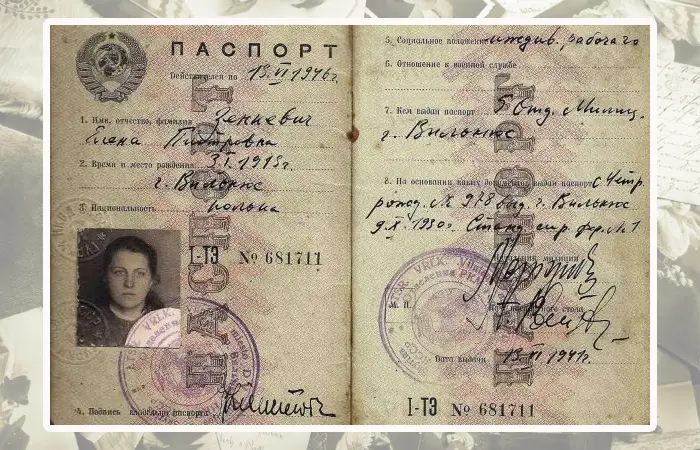 ПАСПОРТ
Действителен по 13.VI 1946г.
1. Имя, отчество, фамилия Зенкевич
Елена Пиотровна
2. Время и место рождения 3.I 1913г.
г. Вильнюс
3. Национальность полька
I-ТЭ № 681711
4. Подпись владельца паспорта
5. Социальное положение иждив. рабочего
6. Отношение к военной службе
7. Кем выдан паспорт 5 Отд. Милиц.
г. Вильнюс
8. На основании каких документов выдан паспорт
рожд. № 978 выд. г. Вильнюс
9.X-1930г.
Начальник милиции
М. П.
Нач. паспортного стола
Дата выдачи 13.VI 1941г.
I-ТЭ № 681711